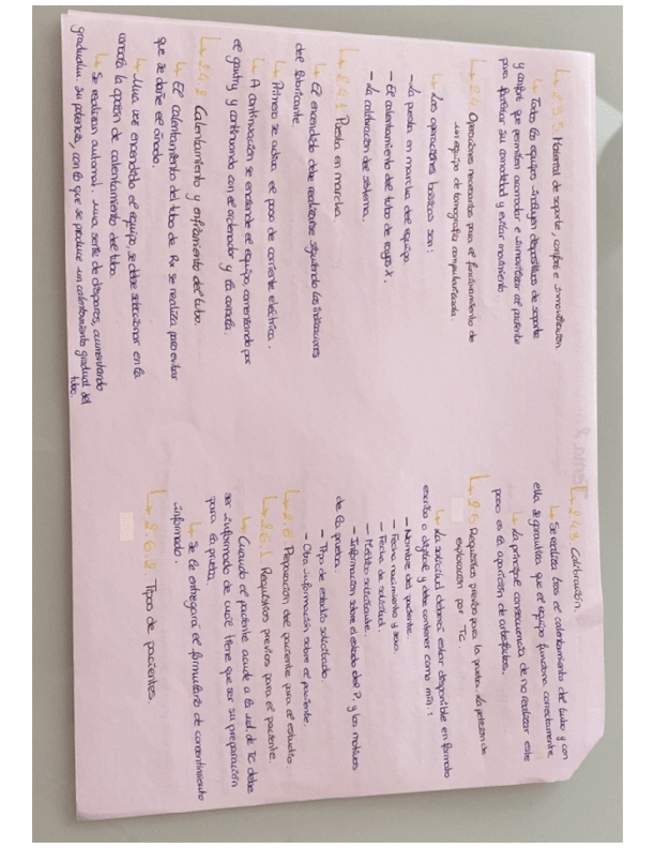 ↳ 2.3.5. Material de soporte, confort e inmovilización
↳ Todos los equipos incluyen dispositivos de soporte
y confort que permiten acomodar e inmovilizar al paciente
para facilitar su comodidad y evitar movimiento
↳ 2.4. Operaciones necesarias para el funcionamiento de
un equipo de tomografía computarizada.
↳ Las operaciones básicas son:
- La puesta en marcha del equipo
- El calentamiento del tubo de rayos X.
- La calibración del sistema.
↳ 2.4.1 Puesta en marcha.
↳ El encendido debe realizarse siguiendo las indicaciones
del fabricante.
↳ Primero se activa el paso de corriente eléctrica.
↳ A continuación se enciende el equipo, comenzando por
el gantry y continuando con el ordenador y la consola.
↳ 2.4.2 Calentamiento y enfriamiento del tubo.
↳ El calentamiento del tubo de Rx se realiza para evitar
que se dañe el ánodo.
↳ Una vez encendido el equipo, se debe seleccionar en la
consola la opción de calentamiento del tubo.
↳ Se realizan automat. una serie de disparos, aumentando
gradualm. su potencia, con lo que se produce un calentamiento gradual del
tubo.
↳ 2.4.3. Calibración.
↳ Se realiza tras el calentamiento del tubo y con
ella se garantiza que el equipo funciona correctamente
↳ La principal consecuencia de no realizar este
paso es la aparición de artefactos.
↳ 2.5 Requisitos previos para la prueba. La petición de
exploración por TC.
↳ La solicitud deberá estar disponible en formato
escrito o digital y debe contener como mín.:
- Nombre del paciente.
- Fecha nacimiento y sexo.
- Fecha de solicitud.
- Médico solicitante.
- Información sobre el estado del P. y los motivos
de la prueba.
- Tipo de estudio solicitado.
- Otra información sobre el paciente.
↳ 2.6. Preparación del paciente para el estudio.
↳ 2.6.1 Requisitos previos para el paciente.
↳ Cuando el paciente acude a la ud. de TC debe
ser informado de cuál tiene que ser su preparación
para la prueba.
↳ Se le entregará el formulario de consentimiento
informado.
↳ 2.6.2 Tipos de pacientes.